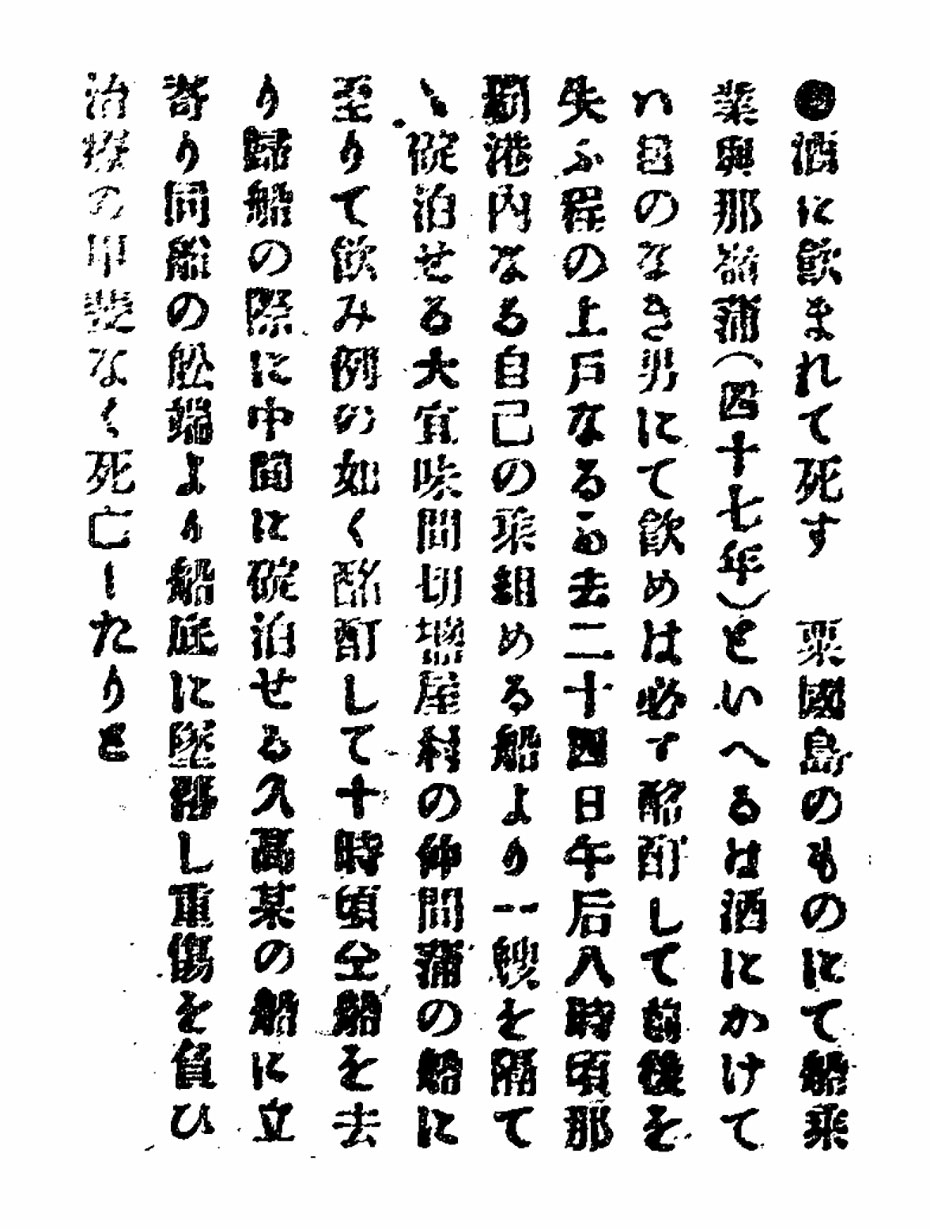 ●酒に飲まれて死す　粟國島のものにて船乘
業與那嶺蒲(四十七年)といへるは酒にかけて
ハ目のなき男にて飲めは必す酩酊して前後を
失ふ程の上戸なるか去二十四日午后八時頃那
覇港内なる自己の乘組める船より一艘を隔て
ゝ碇泊せる大宜味間切塩屋村の仲間蒲の船に
至りて飲み例の如く酩酊して十時頃仝船を去
り歸船の際に中間に碇泊せる久高某の船に立
寄り同船の舩端より船底に墜落し重傷を負ひ
治療の甲斐なく死亡したりと